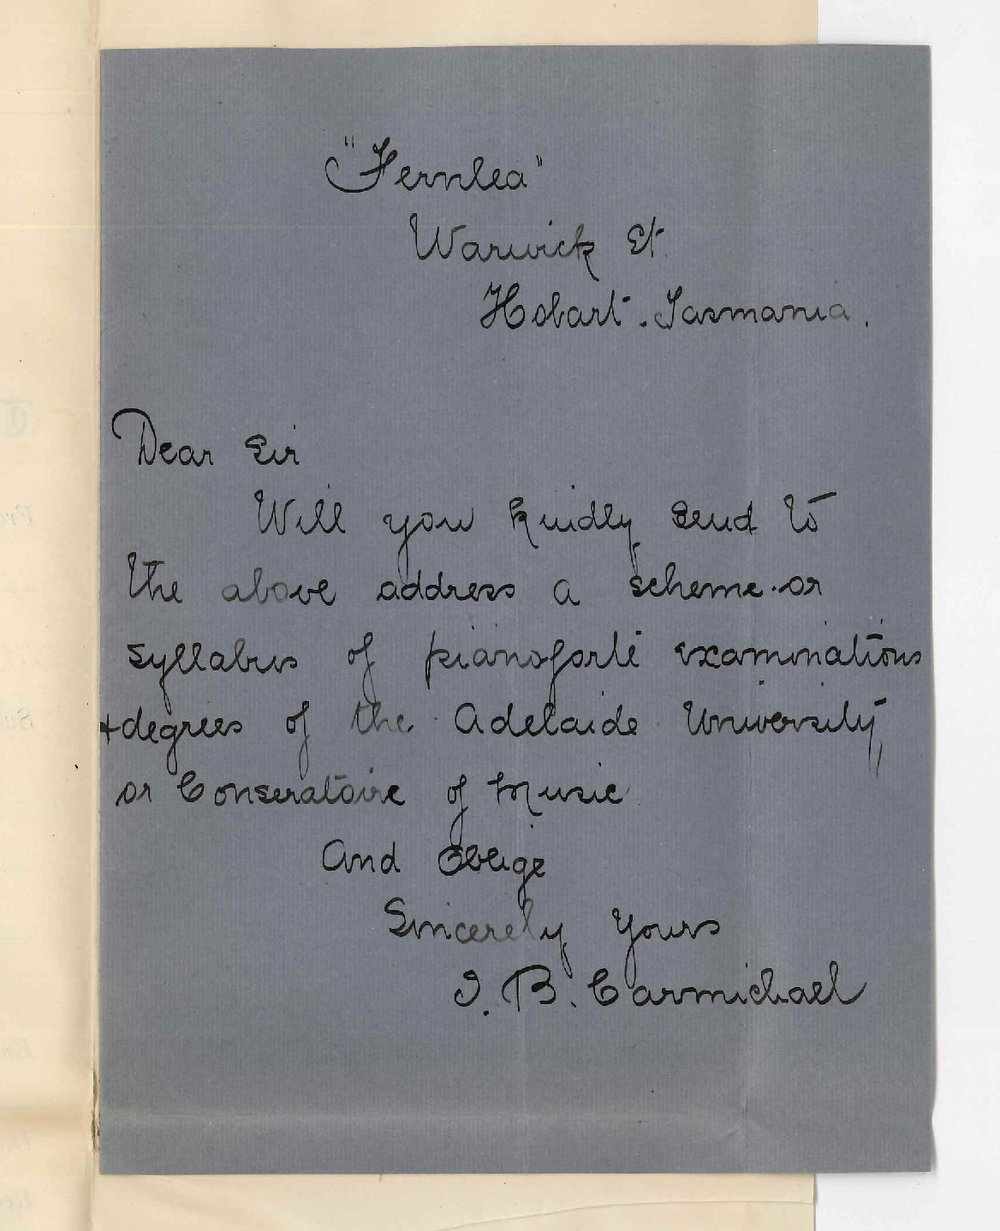 "Fernlea"
Warwick St.
Hobart. Tasmania.
Dear Sir
Will you kindly send to
the above address a scheme or
syllabus of pianoforte examinations
+ degrees of the Adelaide University,
or Conseratoire of Music
And Oblige
Sincerely Yours
I. B. Carmichael